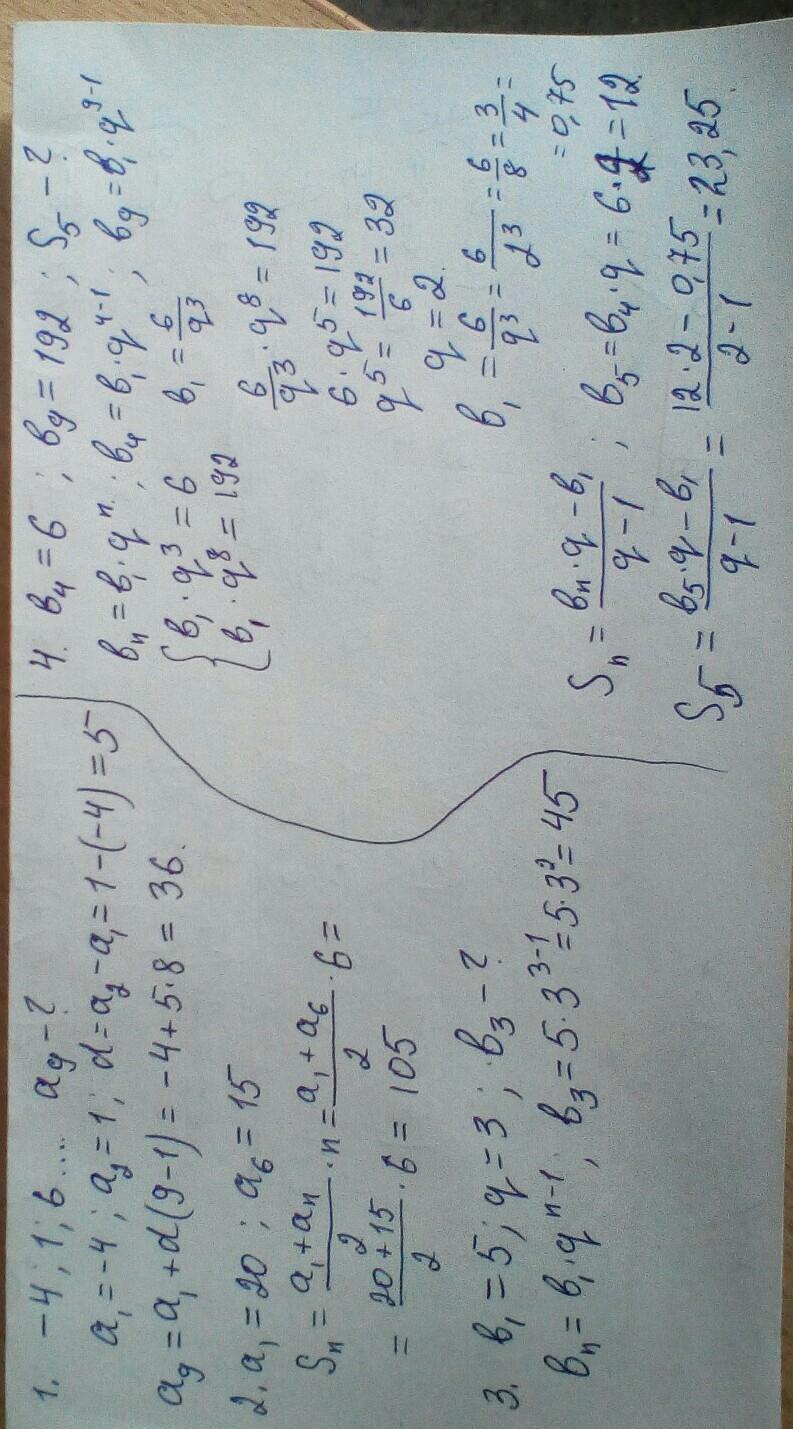 1. -4; 1; 6.... a₉ - ?
a₁ = -4; a₂ = 1; d = a₂ - a₁ = 1 - (-4) = 5
a₉ = a₁ + d(9-1) = -4 + 5·8 = 36.
2. a₁ = 20; a₆ = 15
Sₙ = (a₁ + aₙ)/2 · n = (a₁ + a₆)/2 · 6 =
= (20 + 15)/2 · 6 = 105
3. в₁ = 5; q = 3; в₃ - ?
вₙ = в₁·qⁿ⁻¹; в₃ = 5·3³⁻¹ = 5·3² = 45
4. в₄ = 6; в₉ = 192; S₅ - ?
вₙ = в₁·qⁿ; в₄ = в₁·q⁴⁻¹; в₉ = в₁·q⁹⁻¹
{ в₁·q³ = 6 в₁ = 6/q³
{ в₁·q⁸ = 192 6/q³ · q⁸ = 192
6·q⁵ = 192
q⁵ = 192/6 = 32
q = 2.
в₁ = 6/q³ = 6/2³ = 6/8 = 3/4 =
= 0,75
Sₙ = (вₙ·q - в₁)/(q - 1); в₅ = в₄·q = 6·2 = 12
S₅ = (в₅·q - в₁)/(q - 1) = (12·2 - 0,75)/(2 - 1) = 23,25